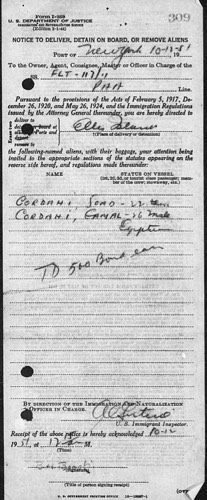 309
Form I-259
U. S. DEPARTMENT OF JUSTICE
IMMIGRATION AND NATURALIZATION SERVICE
NOTICE TO DELIVER, DETAIN ON BOARD, OR REMOVE ALIENS
PORT OF New York 10-12-51
To the Owner, Agent, Consignee, Master or Officer in Charge of the
SS. FLT-117/11
PAA Line.
Pursuant to the provisions of the Acts of February 5, 1917,
December 26, 1920, and May 26, 1924, and the Immigration Regulations
issued by the Attorney General thereunder, you are directed to
deliver to
Ellis Island
(Place of delivery or detention)
the following-named aliens, with their baggage, your attention being
invited to the appropriate sections of the statutes appearing on the
reverse side hereof, and regulations made thereunder:
NAME
STATUS ON VESSEL
CORDAHI, SOAD - 22
CORDAHI, GAMAL - 26 male
Egyptian
TD 500 Bond each
BY DIRECTION OF THE IMMIGRATION AND NATURALIZATION
OFFICER IN CHARGE.
U. S. Immigrant Inspector.
Receipt of the above notice is hereby acknowledged 10-12
1951,
(Time)
(Title of person signing receipt)
U. S. GOVERNMENT PRINTING OFFICE
(OVER)